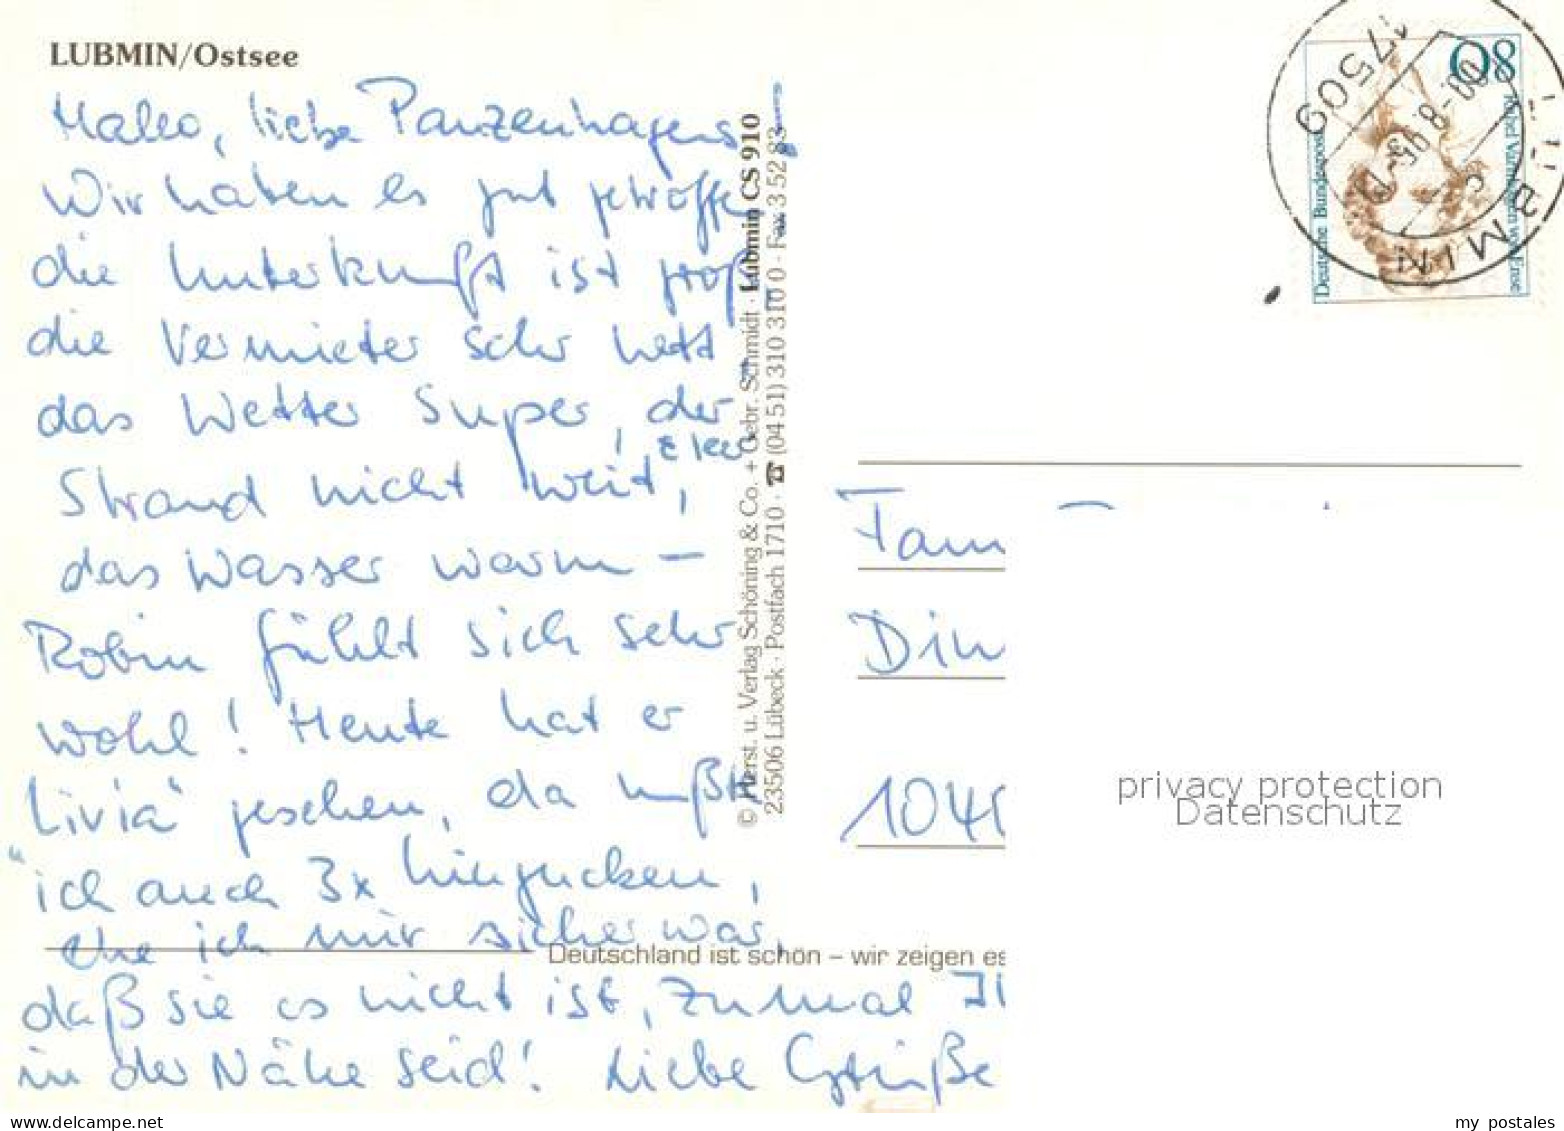 LUBMIN/Ostsee
Hallo, liebe Panzenhagens
Wir haben es gut getroffen
die Unterkunft ist groß
die Vermieter sehr nett
das Wetter Super, der
Strand nicht weit,
das Wasser warm –
Robin fühlt sich sehr
wohl! Heute hat er
Livia" gesehen, da mußte
"ich auch 3x hingucken,
ehe ich mir sicher war,
daß sie es nicht ist, zumal
in der Nähe seid! Liebe Grüße
© Herst. u. Verlag Schöning & Co. + Gebr. Schmidt · Lubmin CS 910
23506 Lübeck · Postfach 1710 · ☎ (04 51) 310 310 0 · Fax 3 52 83
Deutschland ist schön – wir zeigen es
80
Deutsche Bundespost
Rahel Varnhagen von Ense
17509
LUBMIN
Fam
Din
privacy protection
Datenschutz
my postales